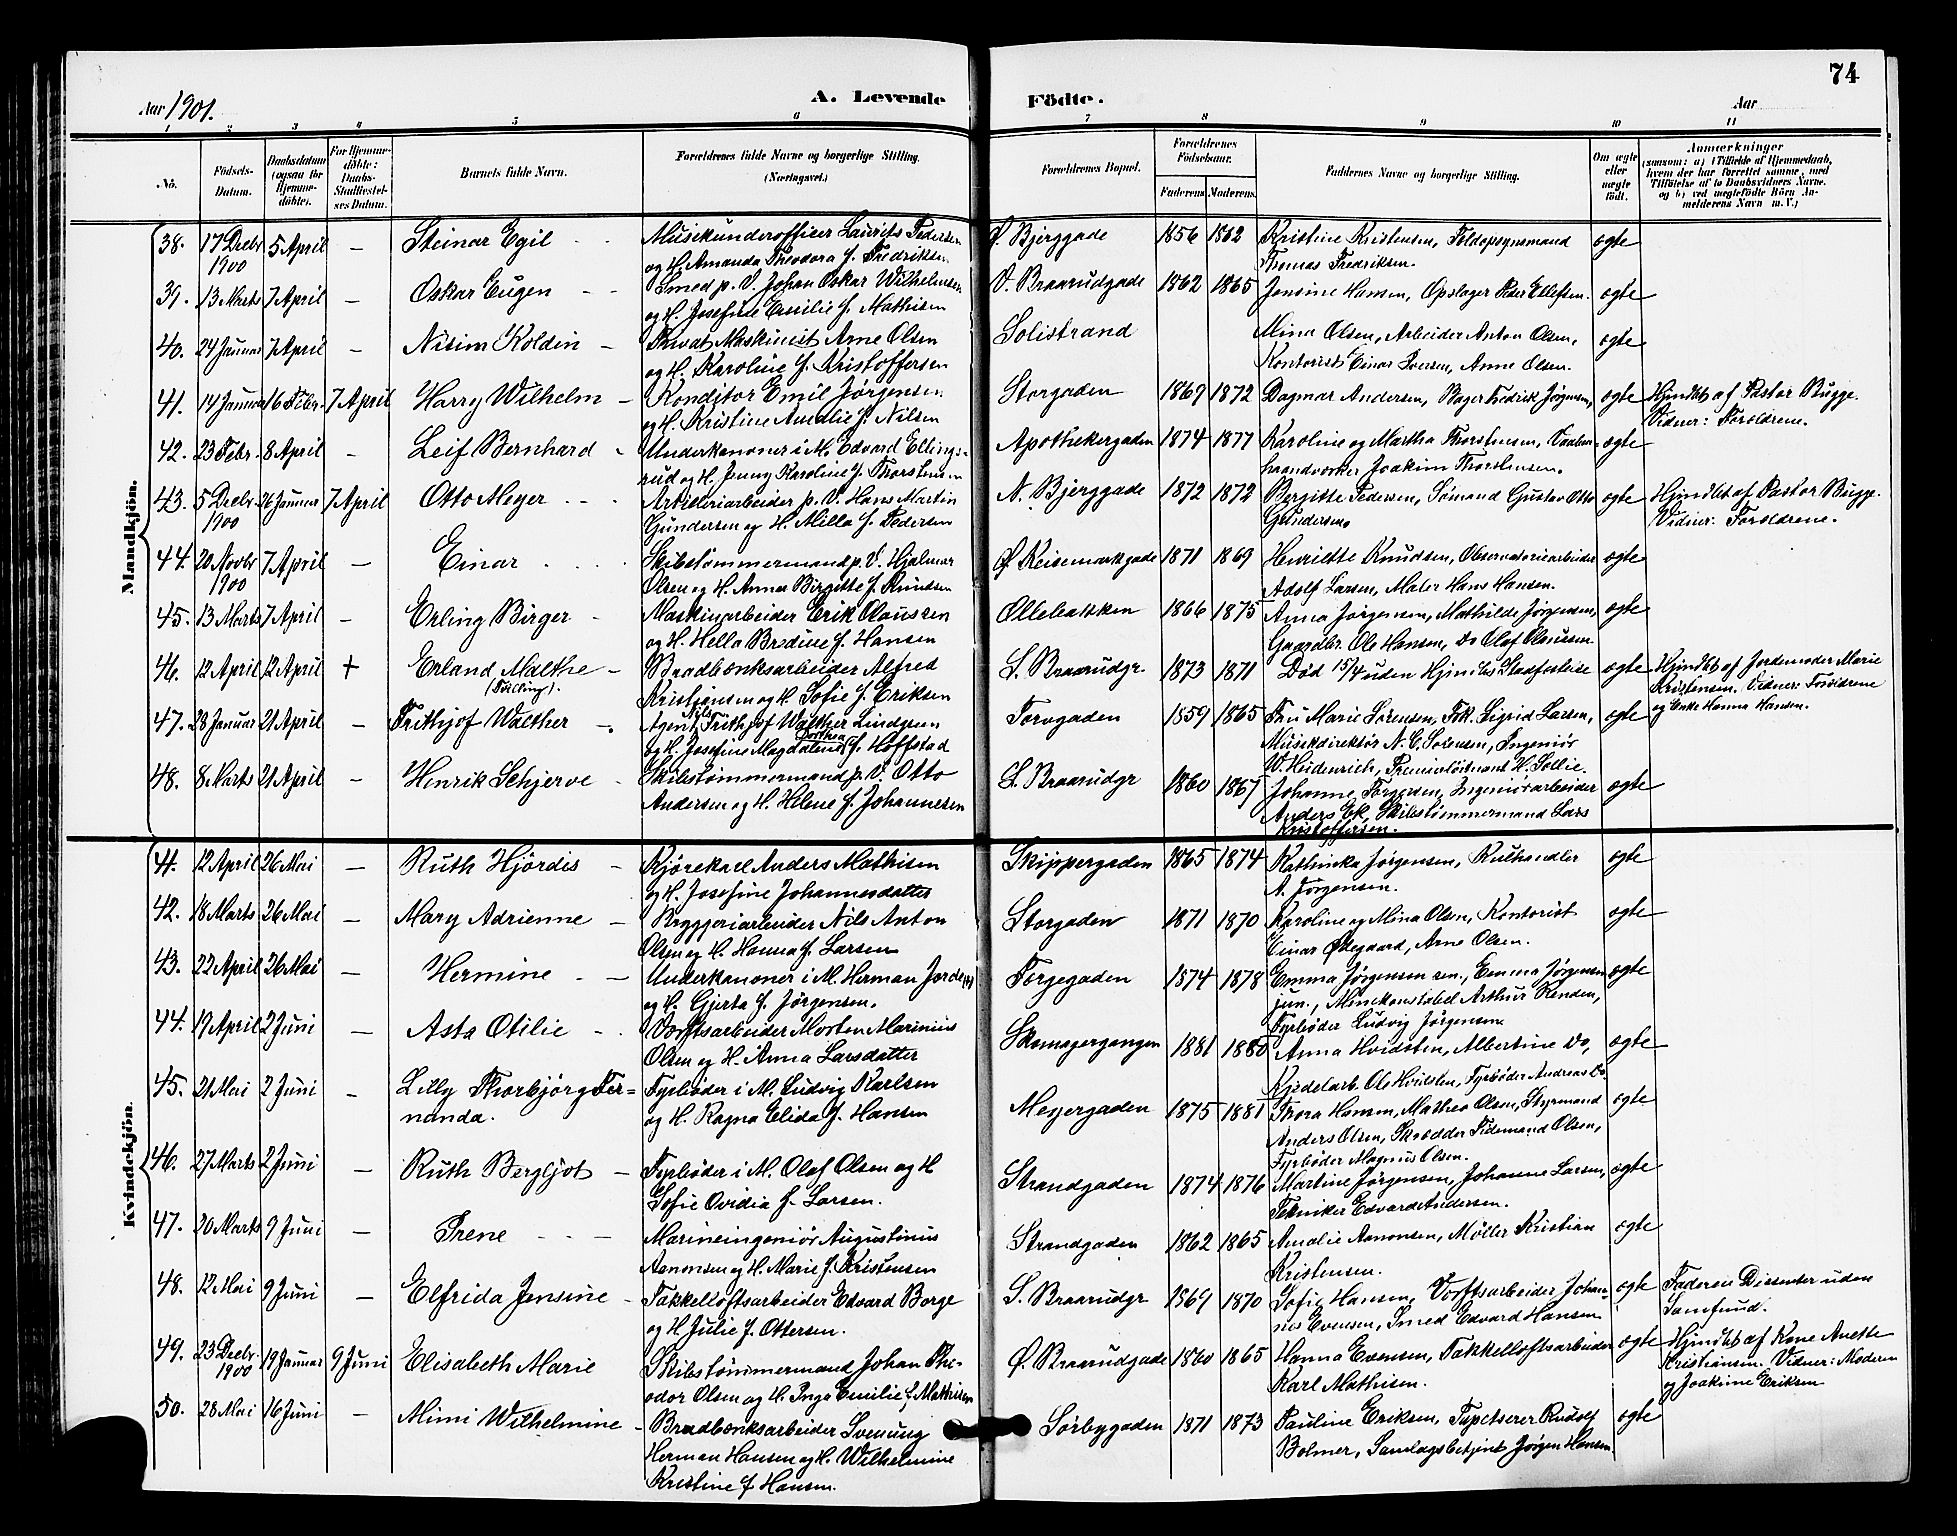 74
Aar 1901.
A. Levende Födte.
Aar
1 2 3 4 5 6 7 8 9 10 11
No.
Födsels-Datum.
Daabsdatum (ogsaa for Hjemmedöbte).
For Hjemmedöbte: Daabs-Stadfæstelses Datum.
Barnets fulde Navn.
Forældrenes fulde Navne og borgerlige Stilling. (Næringsvei.)
Forældrenes Bopæl.
Forældrenes Födselsaar.
Faderens. Moderens.
Faddernes Navne og borgerlige Stilling.
Om ægte eller uægte födt.
Anmærkninger (saasom: a) i Tilfælde af Hjemmedaab, hvem der har forrettet samme, med Tilföielse af to Daabsvidners Navne, og b) ved uægtefödte Börn Anmelderens Navn m. V.)
Mandkjön.
38. 17 Decbr 1900 5 April — Steinar Egil Musikunderofficer Laurits Pedersen og H. Amanda Theodora f. Fredriksen Ø. Bjerggade 1856 1862 Kristine Kristensen, Toldopsynsmand Thomas Fredriksen. ægte
39. 13 Marts 7 April — Oskar Eugen Smed p. V. Johan Oskar Wilhelmsen og H. Josefine Emilie f. Mathisen V. Braarudgade 1862 1865 Jensine Hansen, Opslager Peder Ellefsen. ægte
40. 24 Januar 7 April — Nisim Koldin Privat Maskinist Arne Olsen og H. Karoline f. Kristoffersen Solistrand Mina Olsen, Arbeider Anton Olsen, Kontorist Einar Iversen, Anne Olsen. ægte
41. 14 Januar 16 Febr. 7 April Harry Wilhelm Konditor Emil Jørgensen og H. Kristine Amalie f. Nilsen Storgaden 1869 1872 Dagmar Andersen, Bager Fredrik Jørgensen, ægte Hjmdbt af Pastor Bugge. Vidner: Forældrene.
42. 23 Febr. 8 April — Leif Bernhard Underkanoner i M. Edvard Ellingsrud og H. Jenny Karoline f. Thorstensen Apothekergaden 1874 1877 Karoline og Martha Thorstensen, Vaabenhaandverker Joakim Thorstensen. ægte
43. 5 Decbr. 1900 26 Januar 7 April Otto Meyer Artilleriarbeider p. V. Hans Martin Gundersen og H. Milla f. Pedersen N. Bjerggade 1872 1872 Bergitte Pedersen, Sømand Gustav Otto Gundersen. ægte Hjmdbt af Pastor Bugge. Vidner: Forældrene.
44. 20 Novbr 1900 7 April — Einar Skibstømmermand p. V. Hjalmar Olsen og H. Anna Birgitte f. Knudsen Ø. Keisemarkgade 1871 1869 Henriette Knudsen, Observatoriearbeider Adolf Larsen, Maler Hans Hansen. ægte
45. 13 Marts 7 April — Erling Birger Maskinarbeider Erik Claussen og H. Hella Bredine f. Hansen Øllebakken 1866 1875 Anna Jørgensen, Mathilde Jørgensen, Gaardbr. Ole Hansen, Do Olaf Claussen ægte
46. 12 April 12 April + Erland Malthe (Tvilling). Bradbænksarbeider Alfred Kristjansen og H. Sofie f. Eriksen S. Braarudgr 1873 1871 Død 15/4 uden Hjmdbs Stadfæstelse ægte Hjmdbt af Jordemoder Marie Kristensen. Vidner: Forældrene og Enke Hanna Hansen.
47. 28 Januar 21 April — Frithjof Walther Agent Nils Frithjof Walther Lindgren og H. Josefine Magdalene Dorthea f. Hoffstad Torvgaden 1859 1865 Fru Marie Sørensen, Frk. Sigrid Larsen, Musikdirektør N. C. Sørensen, Ingeniør W. Heidenrich, Premierløitnant H. Sollie. ægte
48. 8 Marts 21 April — Henrik Schjerve Skibstømmermand p. V. Otto Andersen og H. Helene f. Johannesen S. Braarudgr 1860 1867 Johanne Torgersen, Ingeniørarbeider Anders Ek, Skibstømmermand Lars Kristoffersen. ægte
Kvindekjön.
41. 12 April 26 Mai — Ruth Hjørdis Kjørekarl Anders Mathisen og H. Josefine Johannesdatter Skippergaden 1865 1874 Kathinka Jørgensen, Kulhandler A. Jørgensen. ægte
42. 18 Marts 26 Mai — Mary Adrienne Bryggeriarbeider Nils Anton Olsen og H. Hanna f. Larsen Storgaden 1871 1870 Karoline og Mina Olsen, Kontorist Einar Ødegaard, Arne Olsen. ægte
43. 22 April 26 Mai — Hermine Underkanoner i M. Herman Jorde og H. Gjerta f. Jørgensen. Torgegaden 1874 1878 Emma Jørgensen sen., Emma Jørgensen jun., Minekonstabel Arthur Renden, Fyrbøder Ludvig Jørgensen ægte
44. 19 April 2 Juni — Asta Otilie Værftsarbeider Morten Marinius Olsen og H. Anna Larsdatter Skomagergangen 1881 1880 Anna Hvidsten, Albertine Do, Kjedelarb. Ole Hvidsten, Fyrbøder Andreas Do. ægte
45. 21 Mai 2 Juni — Lilly Thorbjørg Fernanda. Fyrbøder i M. Ludvig Karlsen og H. Ragna Elida f. Hansen Meyergaden 1875 1881 Thora Hansen, Mathea Olsen, Styrmand Anders Olsen, Skrædder Tidemand Olsen, Fyrbøder Magnus Olsen. ægte
46. 27 Marts 2 Juni — Ruth Bergljot Fyrbøder i M. Olaf Olsen og H Sofie Ovidia f. Larsen. Strandgaden 1874 1876 Martine Jørgensen, Johanne Larsen, Tekniker Edvard Andersen. ægte
47. 20 Marts 9 Juni — Irene Marineingeniør Augustinus Aanonsen og H. Marie f. Kristensen Strandgaden 1862 1865 Amalie Aanonsen, Møller Kristian Kristensen. ægte
48. 12 Mai 9 Juni — Elfrida Jensine Takkelloftsarbeider Edvard Borge og H Julie f. Ottersen. S. Braarudgr 1869 1870 Sofie Hansen, Værftsarbeider Johannes Evensen, Smed Edvard Hansen ægte Faderen Dissenter uden Samfund.
49. 23 Decbr. 1900 19 Januar 9 Juni Elisabeth Marie Skibstømmermand Johan Theodor Olsen og H. Inga Emilie f. Mathisen Ø. Braarudgade 1860 1865 Hanna Evensen, Takkelloftsarbeider Karl Mathisen. ægte Hjmdbt af Kone Anette Kristiansen. Vidner: Moderen og Joakime Eriksen
50. 28 Mai 16 Juni — Mimi Wilhelmine Bradbænksarbeider Svenung Herman Hansen og H. Wilhelmine Kristine f. Hansen. Sørbygaden 1871 1873 Pauline Eriksen, Tapetserer Rudolf Bolmer, Samlagsbetjent Jørgen Hansen. ægte